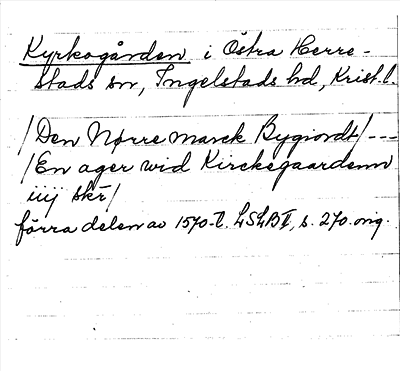 Kyrkogården i Östra Herre-
stads sn, Ingelstads hd, Krist. l.
/Den Nørre marck Bygiordt/---
/En ager wid Kirckegaardenn
iiij skr/
förra delen av 1570-t. LSLB II, s. 270. orig.